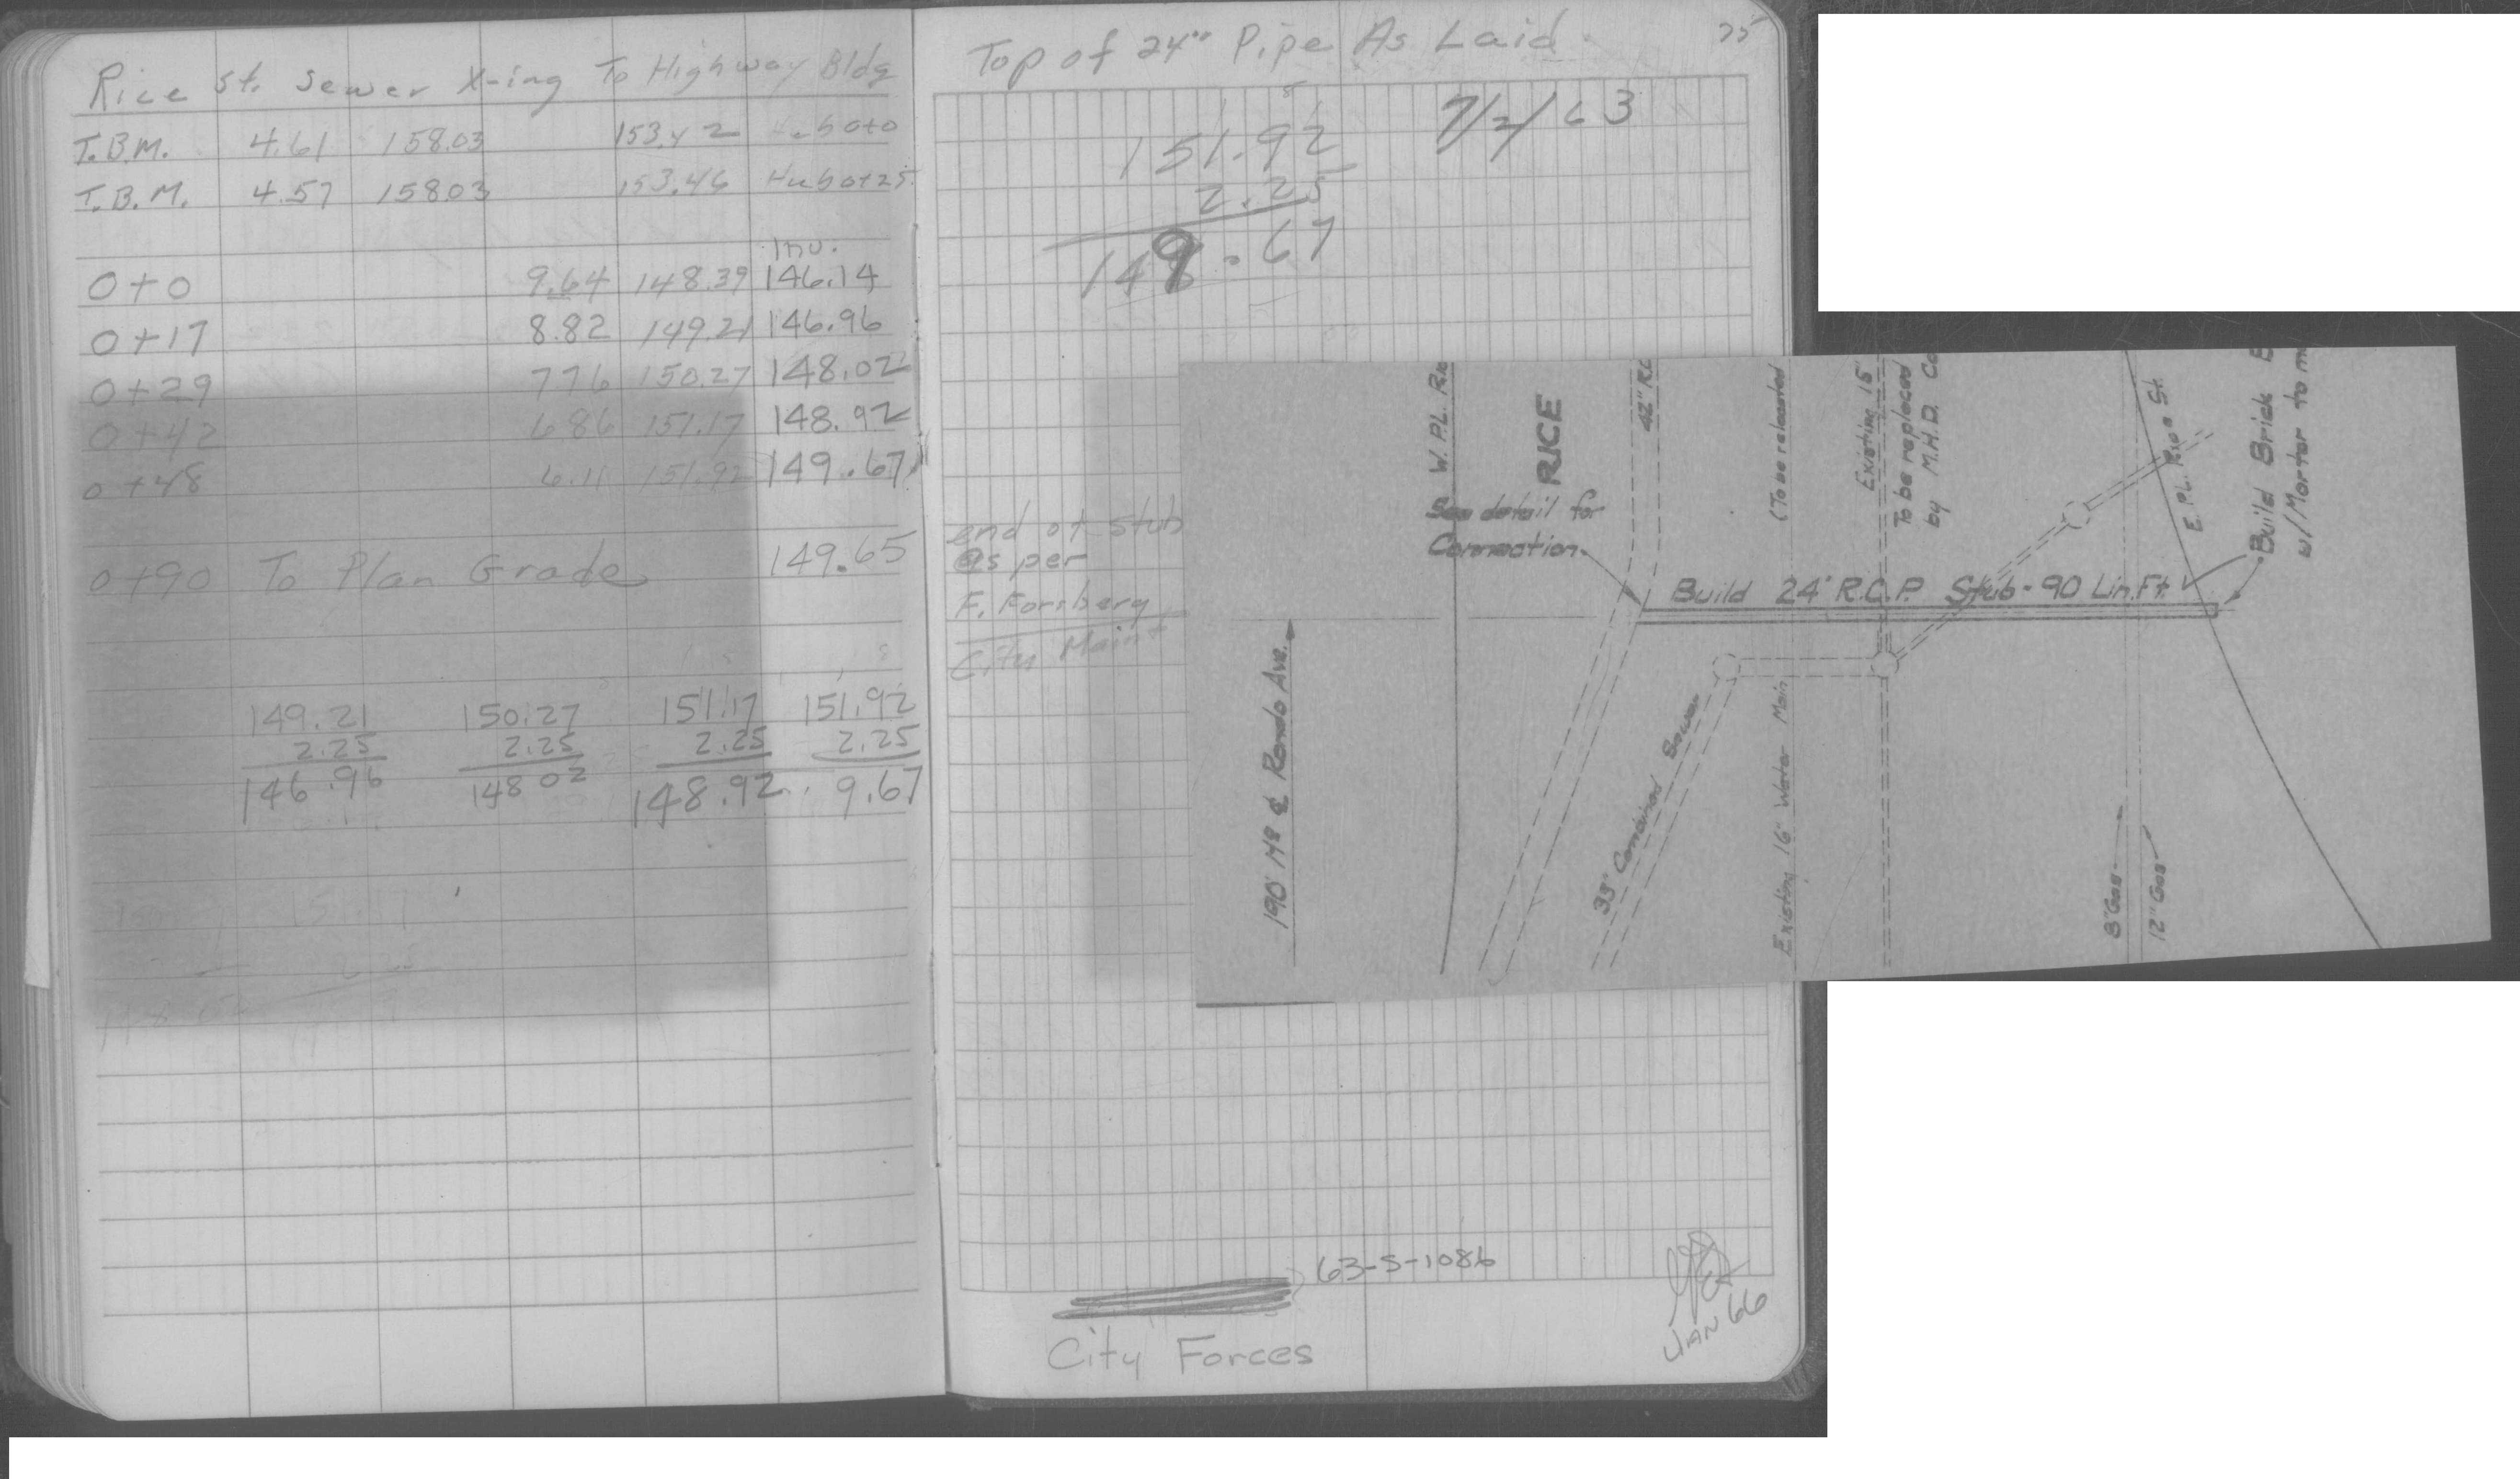 Rice St. Sewer X-ing To Highway Bldg
T.B.M. 4.61 158.03 153.42 Hub 0+0
T.B.M. 4.57 158.03 153.46 Hub 0+25
Inv.
0+0 9.64 148.39 146.14
0+17 8.82 149.21 146.96
0+29 776 150.27 148.02
0+42 686 151.17 148.92
0+48 6.11 151.92 149.67
0+90 To Plan Grade 149.65
149.21 150.27 151.17 151.92
2.25 2.25 2.25 2.25
146.96 148 02 148.92 9.67
Top of 24" Pipe As Laid
151.92 7/2/63
2.25
149.67
end of stub
as per
F. Forsberg
City Maint
W. P.L. Rice
RICE
42" RC
(To be relocated
Existing 15"
To be replaced
by M.H.D. Co
E. P.L. Rice St.
Build Brick B
w/Mortar to m
See detail for
Connection
Build 24" R.C.P. Stub - 90 Lin.Ft.
190' N. ℄ Rondo Ave.
33" Combined Sewer
Existing 16" Water Main
8" Gas
12" Gas
63-S-1086
City Forces
JAN 66